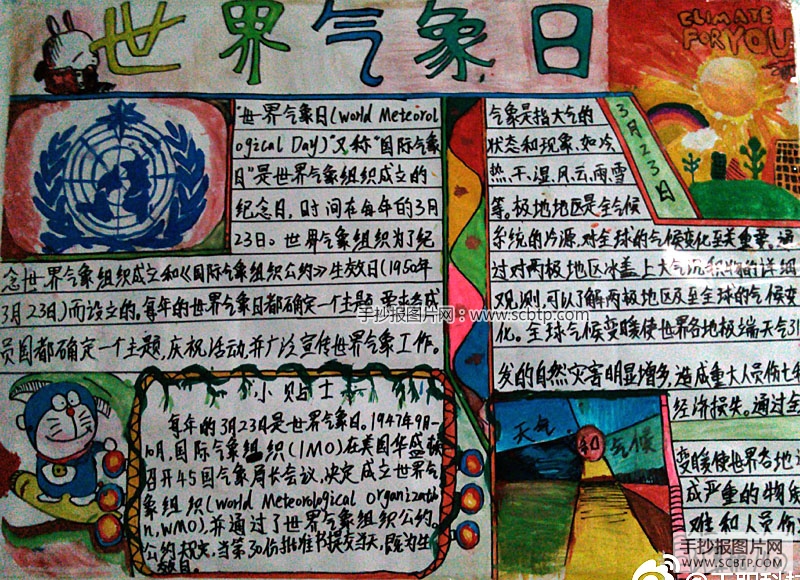 世界气象日
CLIMATE
FOR YOU
3月23日
"世界气象日(World Meteorol
ogical Day)"又称"国际气象
日"是世界气象组织成立的
纪念日,时间在每年的3月
23日。世界气象组织为了纪
念世界气象组织成立和《国际气象组织公约》生效日(1950年
3月23日)而设立的。每年的世界气象日都确定一个主题,要求各成
员国都确定一个主题,庆祝活动,并广泛宣传世界气象工作。
气象是指大气的
状态和现象,如冷、
热、干、湿、风、云、雨、雪
等。极地地区是全气候
系统的冷源,对全球的气候变化至关重要。通
过对两极地区冰盖上大气沉积物的详细
观测,可以了解两极地区及至全球的气候变
化。全球气候变暖使世界各地极端天气引
发的自然灾害明显增多,造成重大人员伤亡和
经济损失。通过全
变暖使世界各地
成严重的物质
难和人员伤
小贴士
每年的3月23日是世界气象日。1947年9月-
10月,国际气象组织(IMO)在美国华盛顿
召开45国气象局长会议,决定成立世界气
象组织(World Meteorological Organizatio
n,WMO),并通过了世界气象组织公约。
公约规定,当第30份批准书提交当天,既为生
效日。
天气
和
气候
手抄报图片网:www.scbtp.com
手抄报图片网
WWW.SCBTP.COM